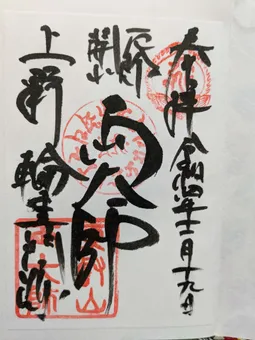 奉拝
令和四年十二月十九日
開山
両大師
上野
輪王寺門跡